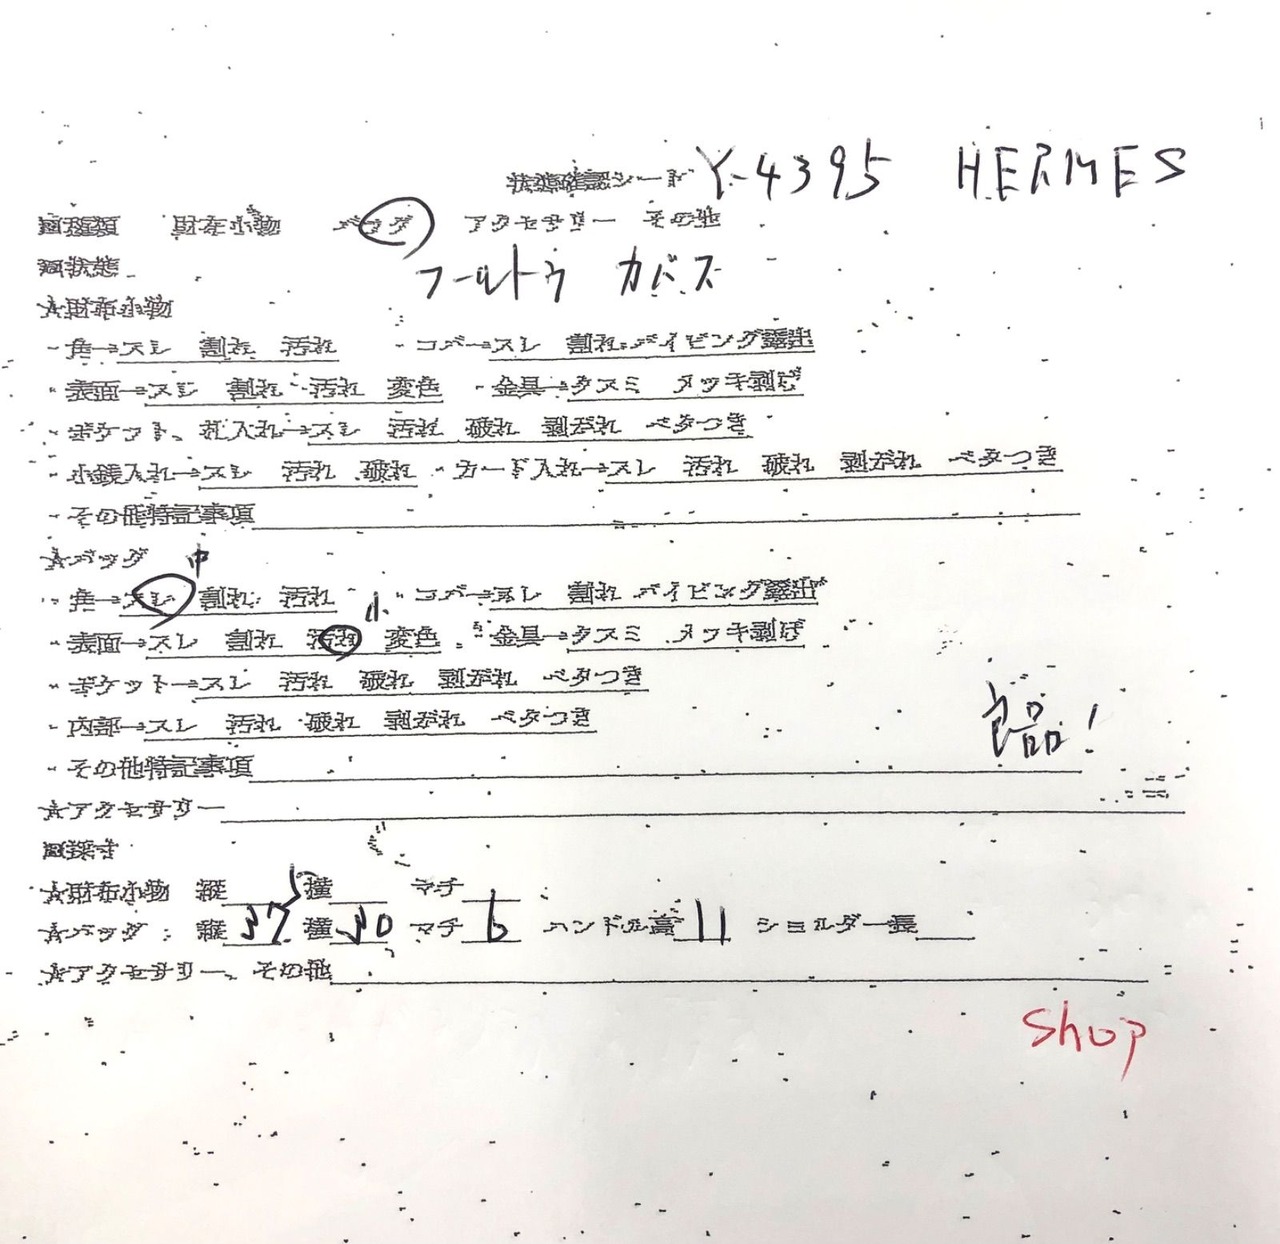 状態確認シート Y-4395 HERMES
■種類 財布小物 バッグ アクセサリー その他
■状態
フールトゥ カバス
★財布小物
・角→スレ 割れ 汚れ ・コバ→スレ 割れ パイピング露出
・表面→スレ 割れ 汚れ 変色 ・金具→クスミ メッキ剥げ
・ポケット、札入れ→スレ 汚れ 破れ 剥がれ ベタつき
・小銭入れ→スレ 汚れ 破れ ・カード入れ→スレ 汚れ 破れ 剥がれ ベタつき
・その他特記事項
★バッグ 中
・角→スレ 割れ 汚れ ・コバ→スレ 割れ パイピング露出
小
・表面→スレ 割れ 汚れ 変色 ・金具→クスミ メッキ剥げ
・ポケット→スレ 汚れ 破れ 剥がれ ベタつき
・内部→スレ 汚れ 破れ 剥がれ ベタつき
良品!
・その他特記事項
★アクセサリー
■採寸
★財布小物 縦 横 マチ
★バッグ:縦 37 横 30 マチ 6 ハンドル高 11 ショルダー長
★アクセサリー、その他
shop